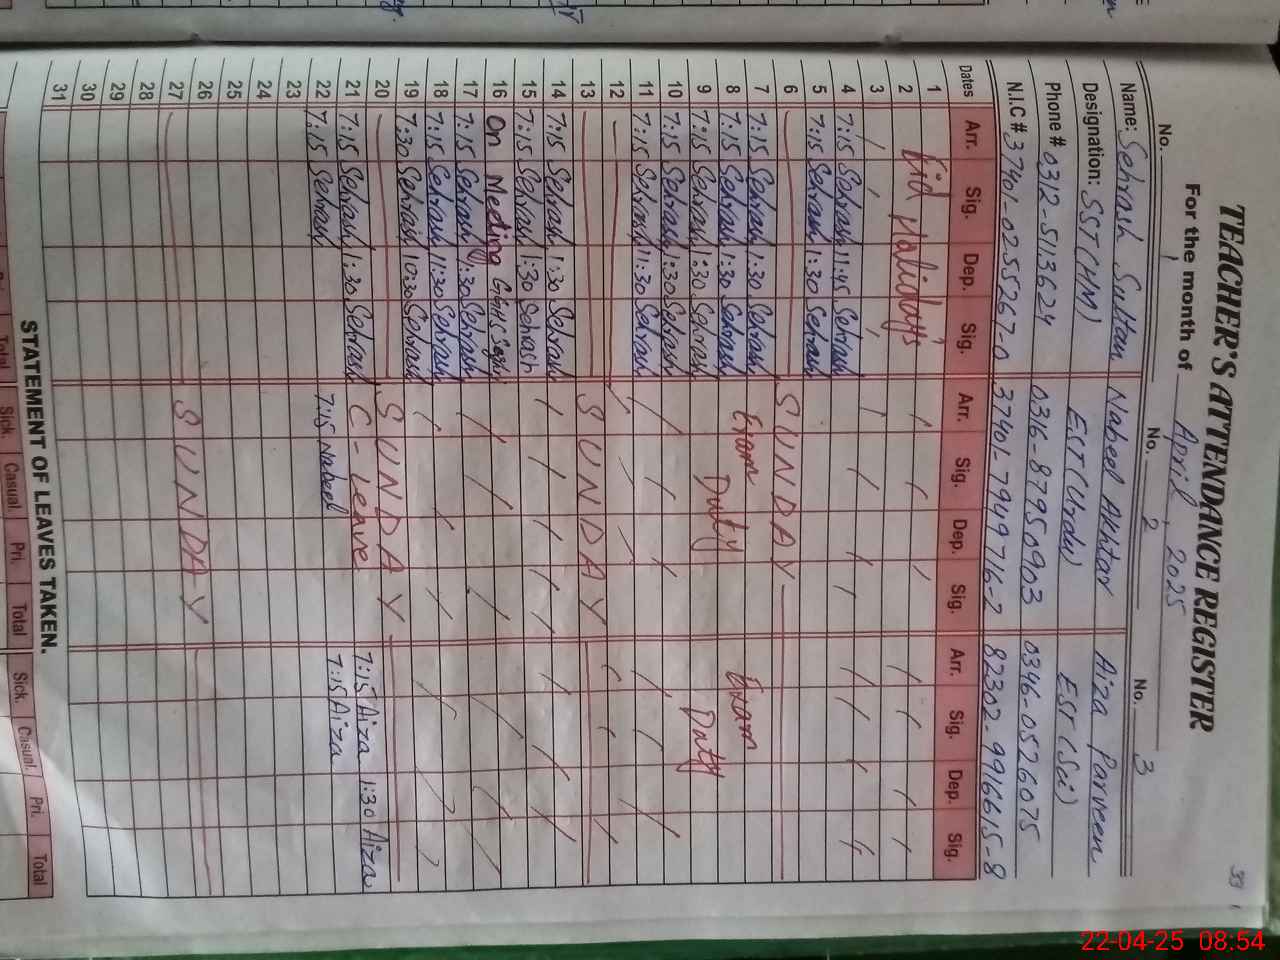 33
TEACHER'S ATTENDANCE REGISTER
For the month of April, 2025
No. 1 No. 2 No. 3
Name: Sehrash Sultan Nabeel Akhtar Aiza Parveen
Designation: SST (HM) EST (Urdu) EST (Sci)
Phone # 0312-5113624 0316-87950903 0346-0526075
N.I.C # 37401-0255267-0 37401-7949716-2 82302-9916615-8
Dates Arr. Sig. Dep. Sig. Arr. Sig. Dep. Sig. Arr. Sig. Dep. Sig.
1
2 Eid Halidays
3
4 7:15 Sehrash 11:45 Sehrash
5 7:15 Sehrash 1:30 Sehrash
6 SUNDAY
7 7:15 Sehrash 1:30 Sehrash Exam Exam
8 7:15 Sehrash 1:30 Sehrash Duty Duty
9 7:15 Sehrash 1:30 Sehrash
10 7:15 Sehrash 1:30 Sehrash
11 7:15 Sehrash 11:30 Sehrash
12
13 SUNDAY
14 7:15 Sehrash 1:30 Sehrash
15 7:15 Sehrash 1:30 Sehrash
16 On Meeting GGHS
17 7:15 Sehrash 1:30 Sehrash
18 7:15 Sehrash 11:30 Sehrash
19 7:30 Sehrash 10:30 Sehrash
20 SUNDAY
21 7:15 Sehrash 1:30 Sehrash C-Leave 7:15 Aiza 1:30 Aiza
22 7:15 Sehrash 7:15 Nabeel 7:15 Aiza
23
24
25
26
27 SUNDAY
28
29
30
31
STATEMENT OF LEAVES TAKEN.
Total Sick. Casual. Pri. Total Sick. Casual. Pri. Total
22-04-25 08:54